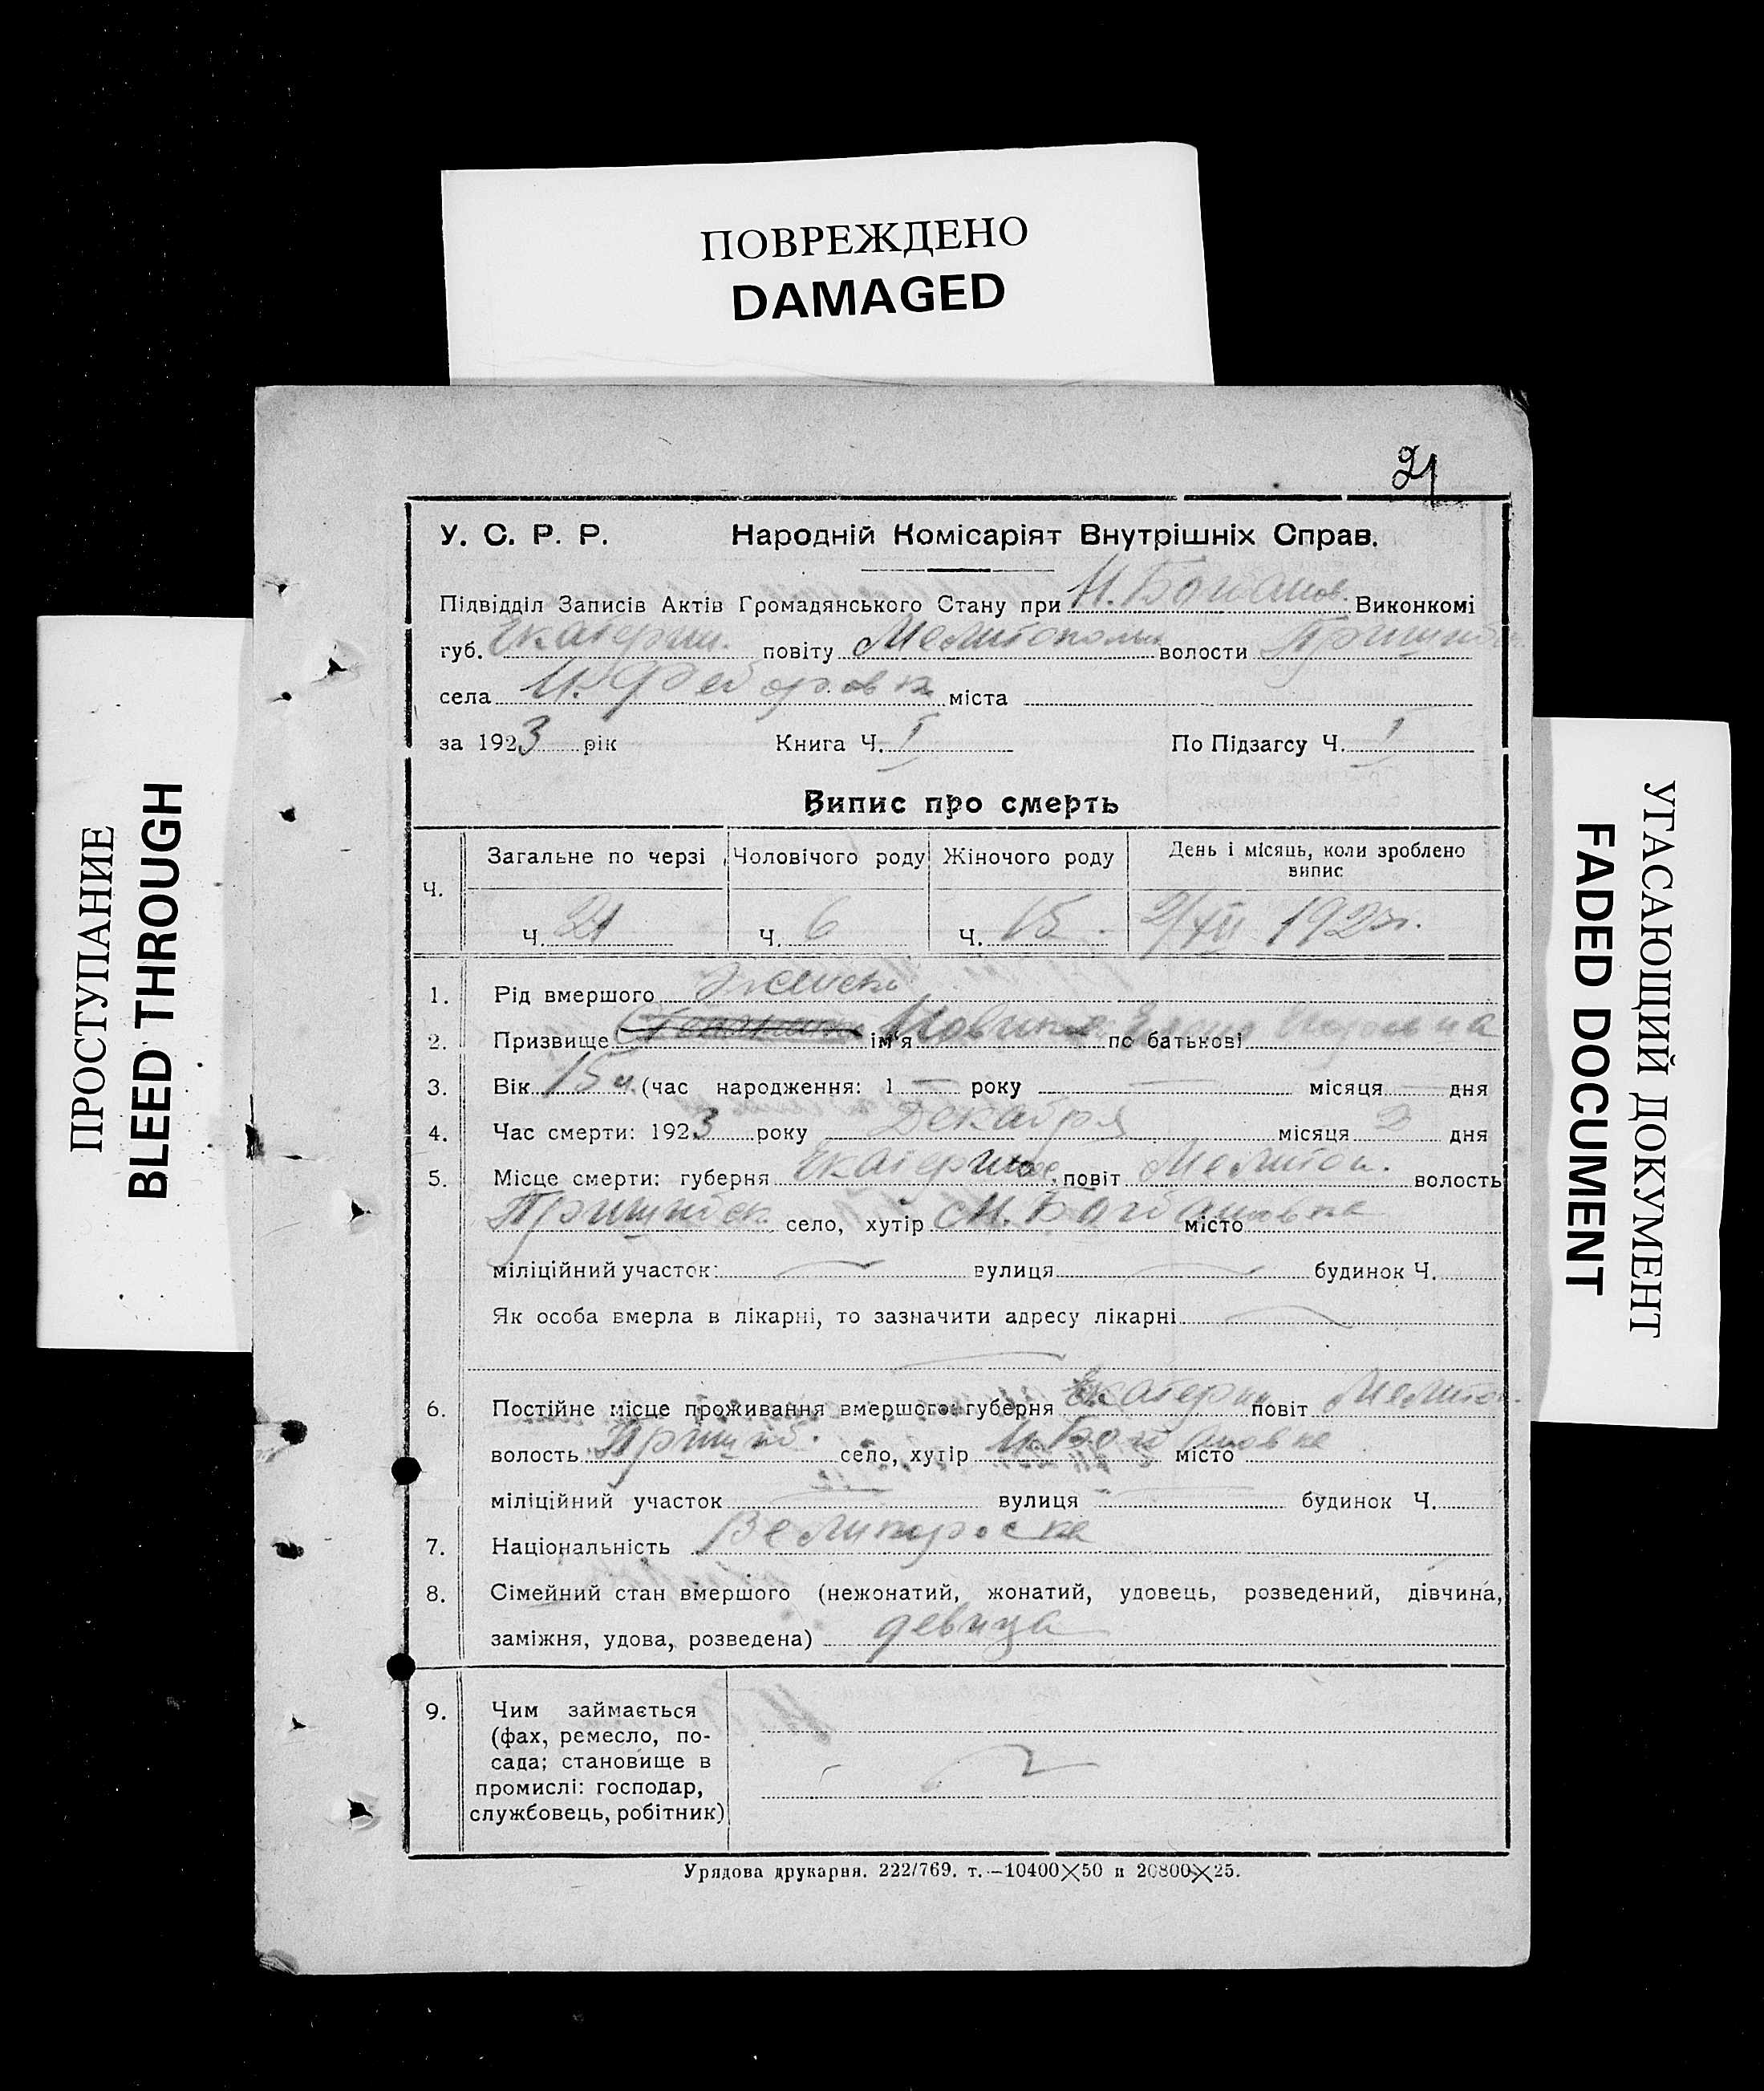 ПОВРЕЖДЕНО
DAMAGED
ПРОСТУПАНИЕ
BLEED THROUGH
УГАСАЮЩИЙ ДОКУМЕНТ
FADED DOCUMENT
21
У. С. Р. Р. Народній Комісаріят Внутрішніх Справ.
Підвідділ Записів Актів Громадянського Стану при Виконкомі
губ. Екатерин. повіту Мелитопольск волости Пришибск
села міста
за 1923 рік Книга Ч. I По Підзагсу Ч. I
Випис про смерть
Ч. Загальне по черзі Чоловічого роду Жіночого роду День і місяць, коли зроблено випис
Ч. 21 Ч. 6 Ч. 15 2/XII 1923 г.
1. Рід вмершого женски
2. Призвище ім'я Елена по батькові
3. Вік 15 (час народження: 1 — року — місяця — дня
4. Час смерти: 1923 року Декабря місяця 2 дня
5. Місце смерти: губерня Екатерин повіт Мелитоп. волость
Пришибск. село, хутір М. Богдановка місто
міліційний участок: — вулиця — будинок Ч.
Як особа вмерла в лікарні, то зазначити адресу лікарні —
6. Постійне місце проживання вмершого: губерня Екатерин повіт Мелитоп.
волость Пришиб. село, хутір М. Богдановка місто
міліційний участок — вулиця — будинок Ч.
7. Національність Великороска
8. Сімейний стан вмершого (нежонатий, жонатий, удовець, розведений, дівчина,
заміжня, удова, розведена) девица
9. Чим займається
(фах, ремесло, по-
сада; становище в
промислі: господар,
службовець, робітник)
Урядова друкарня. 222/769. т.—10400×50 и 20800×25.